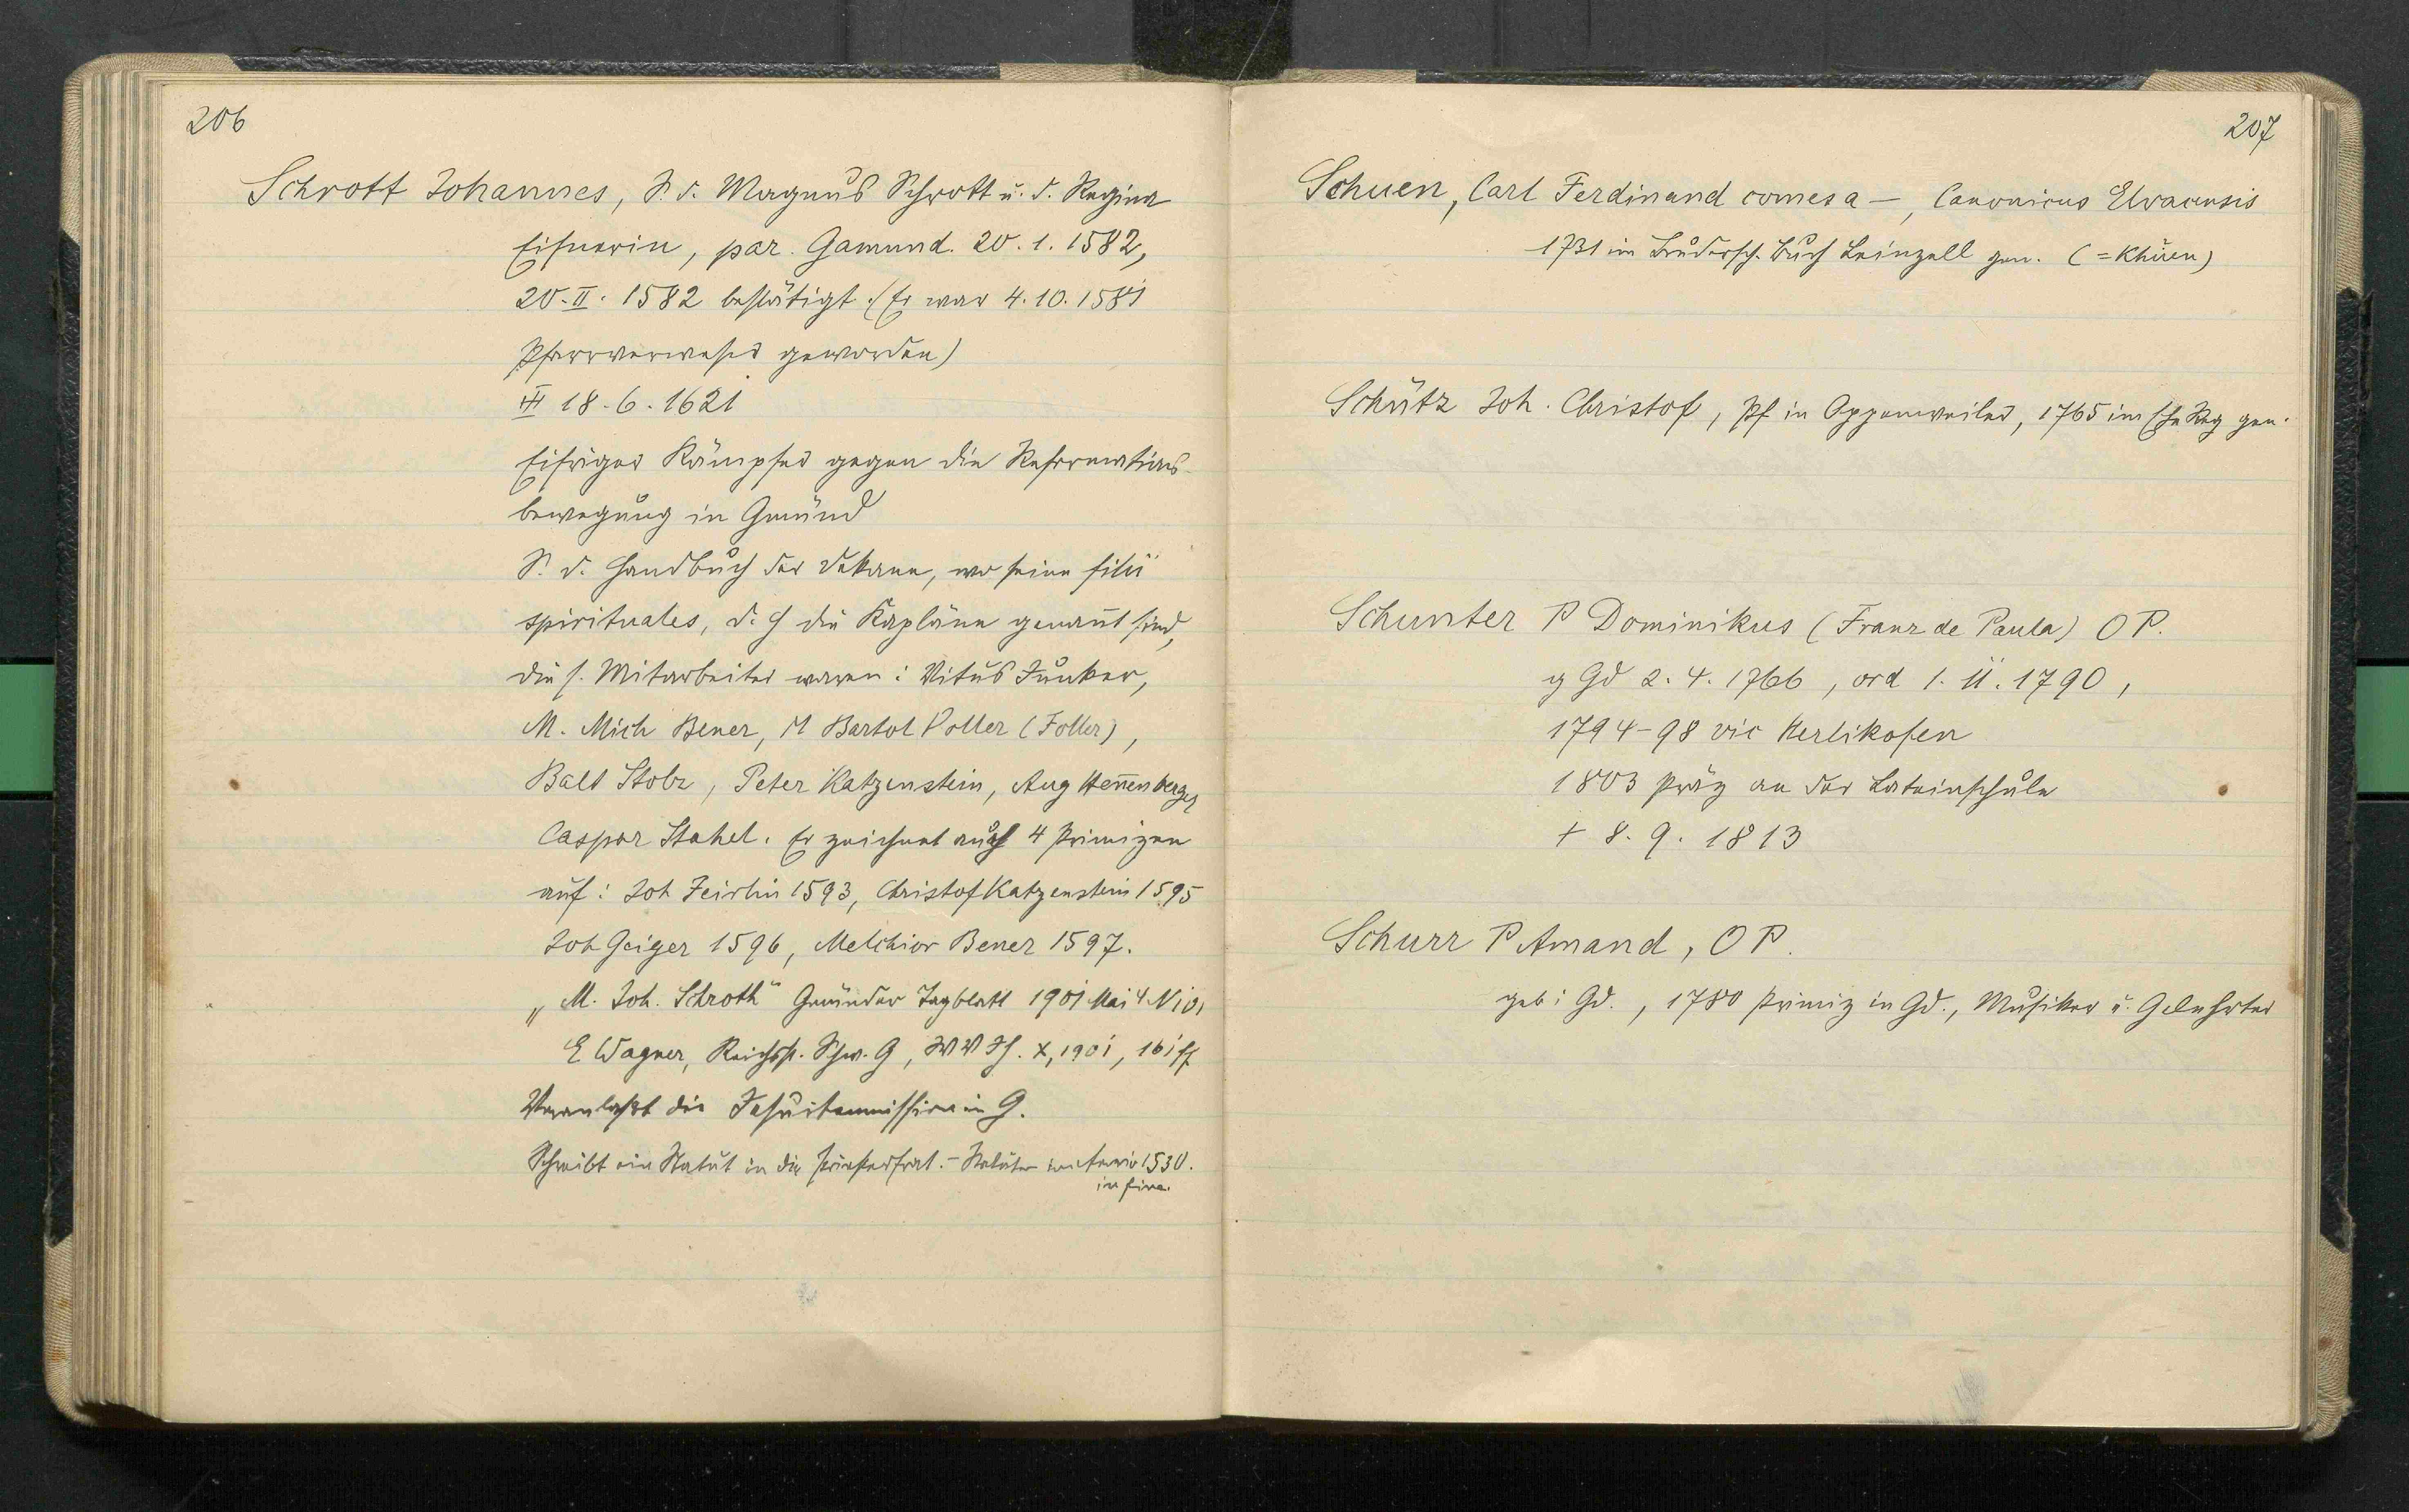 206
Schrott Johannes, S. d. Magnus Schrott u. d. Regina
Eisnerin, par. Gamund. 20. 1. 1582,
20. II. 1582 bestätigt. (Er war 4. 10. 1581
Pfarrverweser geworden)
18. 6. 1621
Eifriger Kämpfer gegen die Reformations-
bewegung in Gmünd
S. d. Handbuch der Dekane, wo seine filii
spirituales, d. h die Kapläne genannt sind,
die s. Mitarbeiter waren: Vitus Junker,
M. Mich Bener, M Bartol Voller (Foller),
Balt Stolz, Peter Katzenstein, Aug Hen̄enberger
Caspar Stahel. Er zeichnet auch 4 Primizen
auf: Joh Zeirlin 1593, Christof Katzenstein 1595
Joh Geiger 1596, Melchior Bener 1597.
„M. Joh. Schroth" Gmünder Tagblatt 1901 Mai 4 N 101
E Wagner, Reichsst. Schw. G, WVJH. X, 1901, 161 ff
Veranlaßt die Jesuitenmission in G.
Schreibt ein Statut in die Priesterfrat.-Statuten 1530.
in fine.
207
Schuen, Carl Ferdinand comes a —, Canonicus Elvacensis
1731 im Brudersch. Buch Leinzell gen. (= Khuen)
Schütz Joh. Christof, Pf in Oppenweiler, 1765 im Ehe Reg gen.
Schunter P Dominikus (Franz de Paula) O P.
g Gd 2. 4. 1766, ord 1. 11. 1790,
1794-98 vic Herlikofen
1803 Präz an der Lateinschule
† 8. 9. 1813
Schurr P Amand, O P.
geb i Gd., 1780 Primiz in Gd., Musiker u. Gelehrter